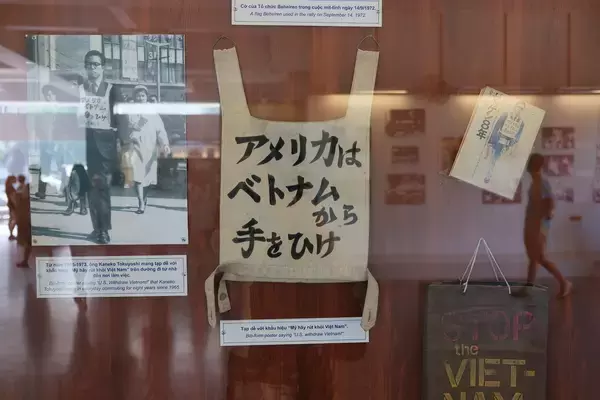 Cờ của Tổ chức Beheiren trong cuộc mít-tinh ngày 14/9/1972.
A flag Beheiren used in the rally on September 14, 1972.
アメリカは
ベトナム
から
手をひけ
Tạp dề với khẩu hiệu "Mỹ hãy rút khỏi Việt Nam".
Bib-front poster saying "U.S. withdraw Vietnam!"
ông Kaneko Tokuyoshi mang tạp dề với
"Mỹ hãy rút khỏi Việt Nam" trên đường đi từ nhà
nơi làm việc.
"U.S. withdraw Vietnam!" that Kaneko
commuting for eight years since 1965
STOP
the
VIET-
NAM